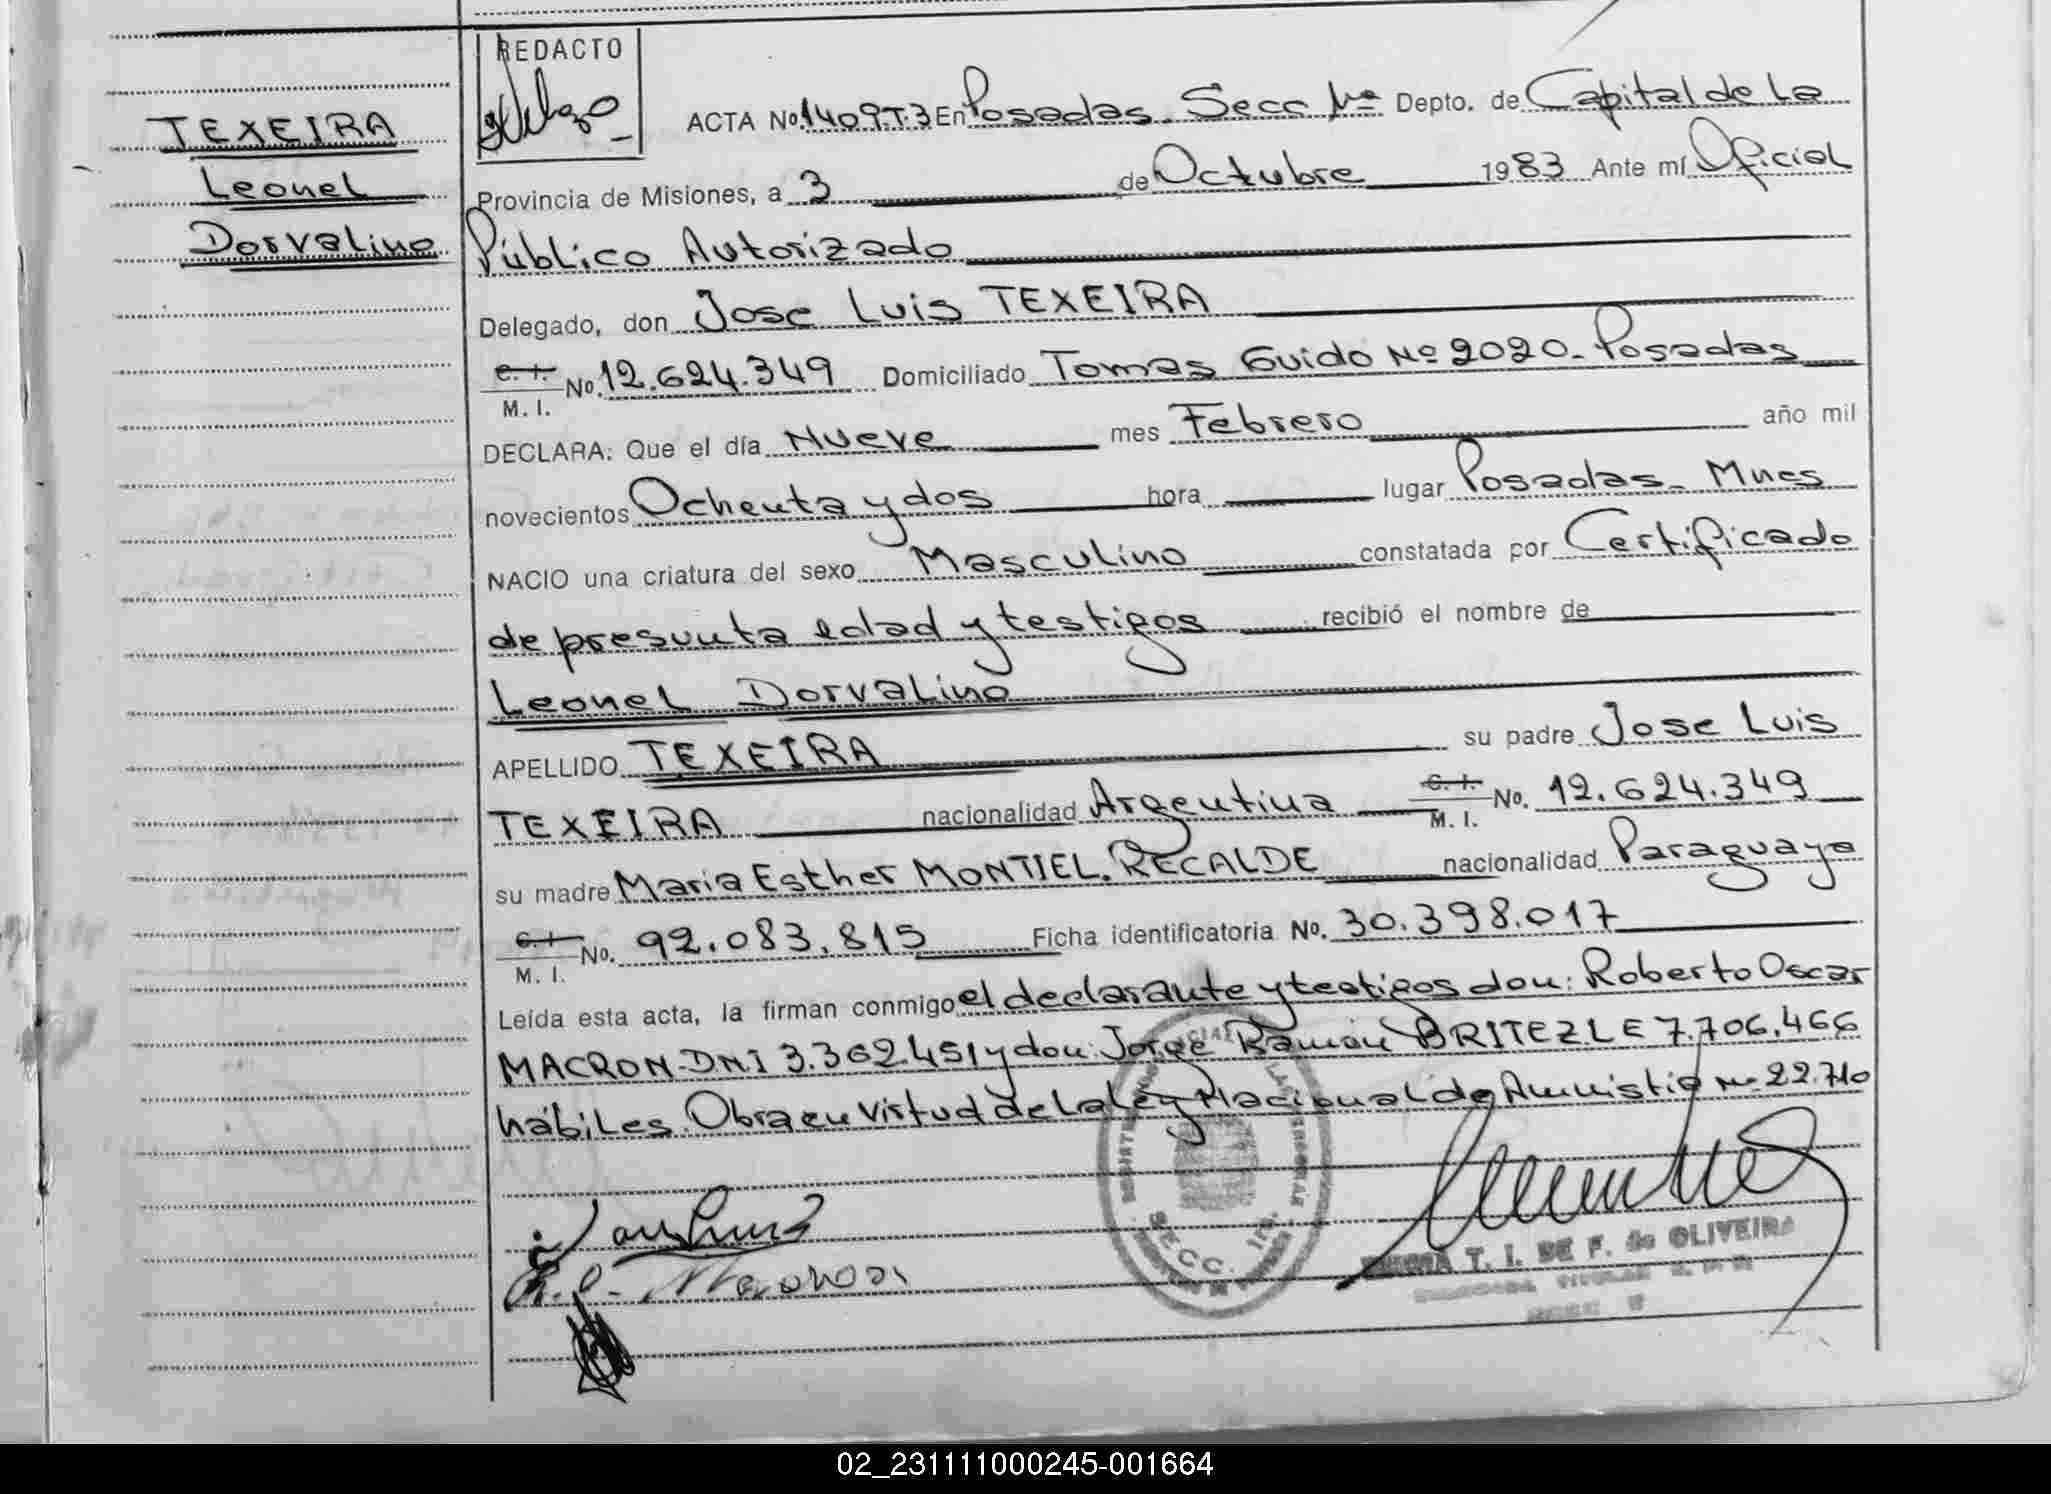 REDACTO
TEXEIRA
Leonel
Dorvalino
ACTA No. 1409T3 En Posadas. Secc 1ra Depto. de Capital de La
Provincia de Misiones, a 3 de Octubre 1983 Ante mí Oficial
Público Autorizado
Delegado, don Jose Luis TEXEIRA
C. I. No. 12.624.349 Domiciliado Tomas Guido No 2020. Posadas
M. I.
DECLARA: Que el día Nueve mes Febrero año mil
novecientos Ochenta y dos hora lugar Posadas. Mnes
NACIO una criatura del sexo Masculino constatada por Certificado
de presunta edad y testigos recibió el nombre de
Leonel Dorvalino
APELLIDO TEXEIRA su padre Jose Luis
TEXEIRA nacionalidad Argentina C. I. No. 12.624.349
M. I.
su madre Maria Esther MONTIEL. RECALDE nacionalidad Paraguaya
C. I. No. 92.083.815 Ficha identificatoria No. 30.398.017
M. I.
Leída esta acta, la firman conmigo el declarante y testigos don: Roberto Oscar
MACRON. DNI 3.362.451 y don: Jorge Ramón BRITEZ LE 7.706.466
hábiles. Obra en virtud de La Ley Nacional de Amnistia No 22.710
SECC. 1ra.
T. I. DE F. de OLIVEIRA
02_231111000245-001664